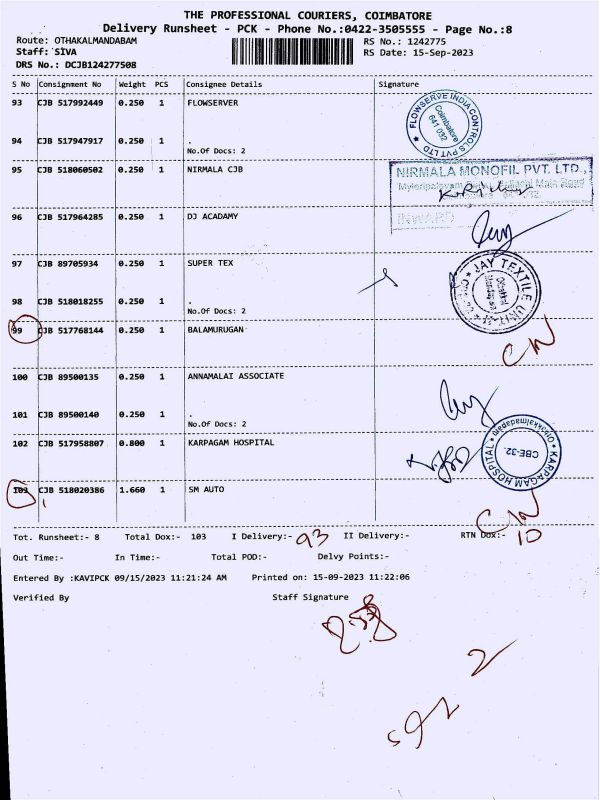 THE PROFESSIONAL COURIERS, COIMBATORE
Delivery Runsheet - PCK - Phone No.:0422-3505555 - Page No.:8
Route: OTHAKALMANDABAM RS No.: 1242775
Staff: SIVA RS Date: 15-Sep-2023
DRS No.: DCJB124277508
S No Consignment No Weight PCS Consignee Details Signature
93 CJB 517992449 0.250 1 FLOWSERVER
FLOWSERVE INDIA CONTROLS PVT LTD
Coimbatore
641 032
94 CJB 517947917 0.250 1 .
No.Of Docs: 2
95 CJB 518060502 0.250 1 NIRMALA CJB
NIRMALA MONOFIL PVT. LTD.,
INWARD
96 CJB 517964285 0.250 1 DJ ACADAMY
97 CJB 89705934 0.250 1 SUPER TEX
JAY TEXTILE UNIT
98 CJB 518018255 0.250 1 .
No.Of Docs: 2
99 CJB 517768144 0.250 1 BALAMURUGAN
CN
100 CJB 89500135 0.250 1 ANNAMALAI ASSOCIATE
101 CJB 89500140 0.250 1 .
No.Of Docs: 2
102 CJB 517958807 0.800 1 KARPAGAM HOSPITAL
KARPAGAM HOSPITAL
CBE-32.
103 CJB 518020386 1.660 1 SM AUTO
CN
Tot. Runsheet:- 8 Total Dox:- 103 I Delivery:- 93 II Delivery:- RTN Dox:- 10
Out Time:- In Time:- Total POD:- Delvy Points:-
Entered By :KAVIPCK 09/15/2023 11:21:24 AM Printed on: 15-09-2023 11:22:06
Verified By Staff Signature